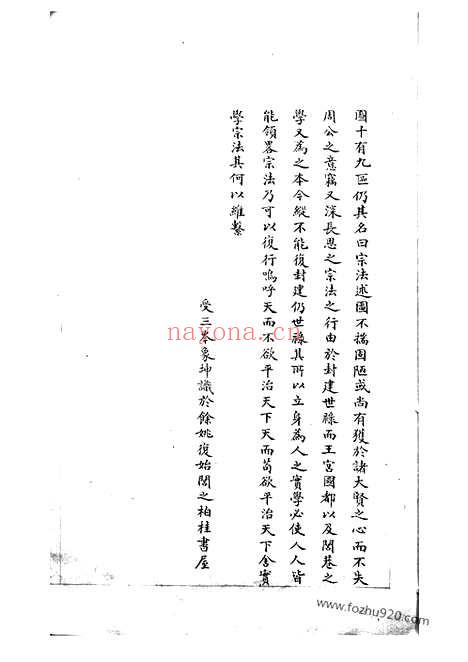 圖十有九區仍其名曰宗法述圖不揣固陋或尚有獲於諸大賢之心而不失
周公之意竊又深長思之宗法之行由於封建世祿而王宮國都以及閭巷之
學又為之本今縱不能復封建仍世祿其所以立身為人之實學必使人人皆
能領畧宗法乃可以復行嗚呼天而不欲平治天下天而苟欲平治天下舍實
學宗法其何以維繫
受三峯象坤識於餘姚復始閣之柏柱書屋
nayona.cn
www.fozhu920.com